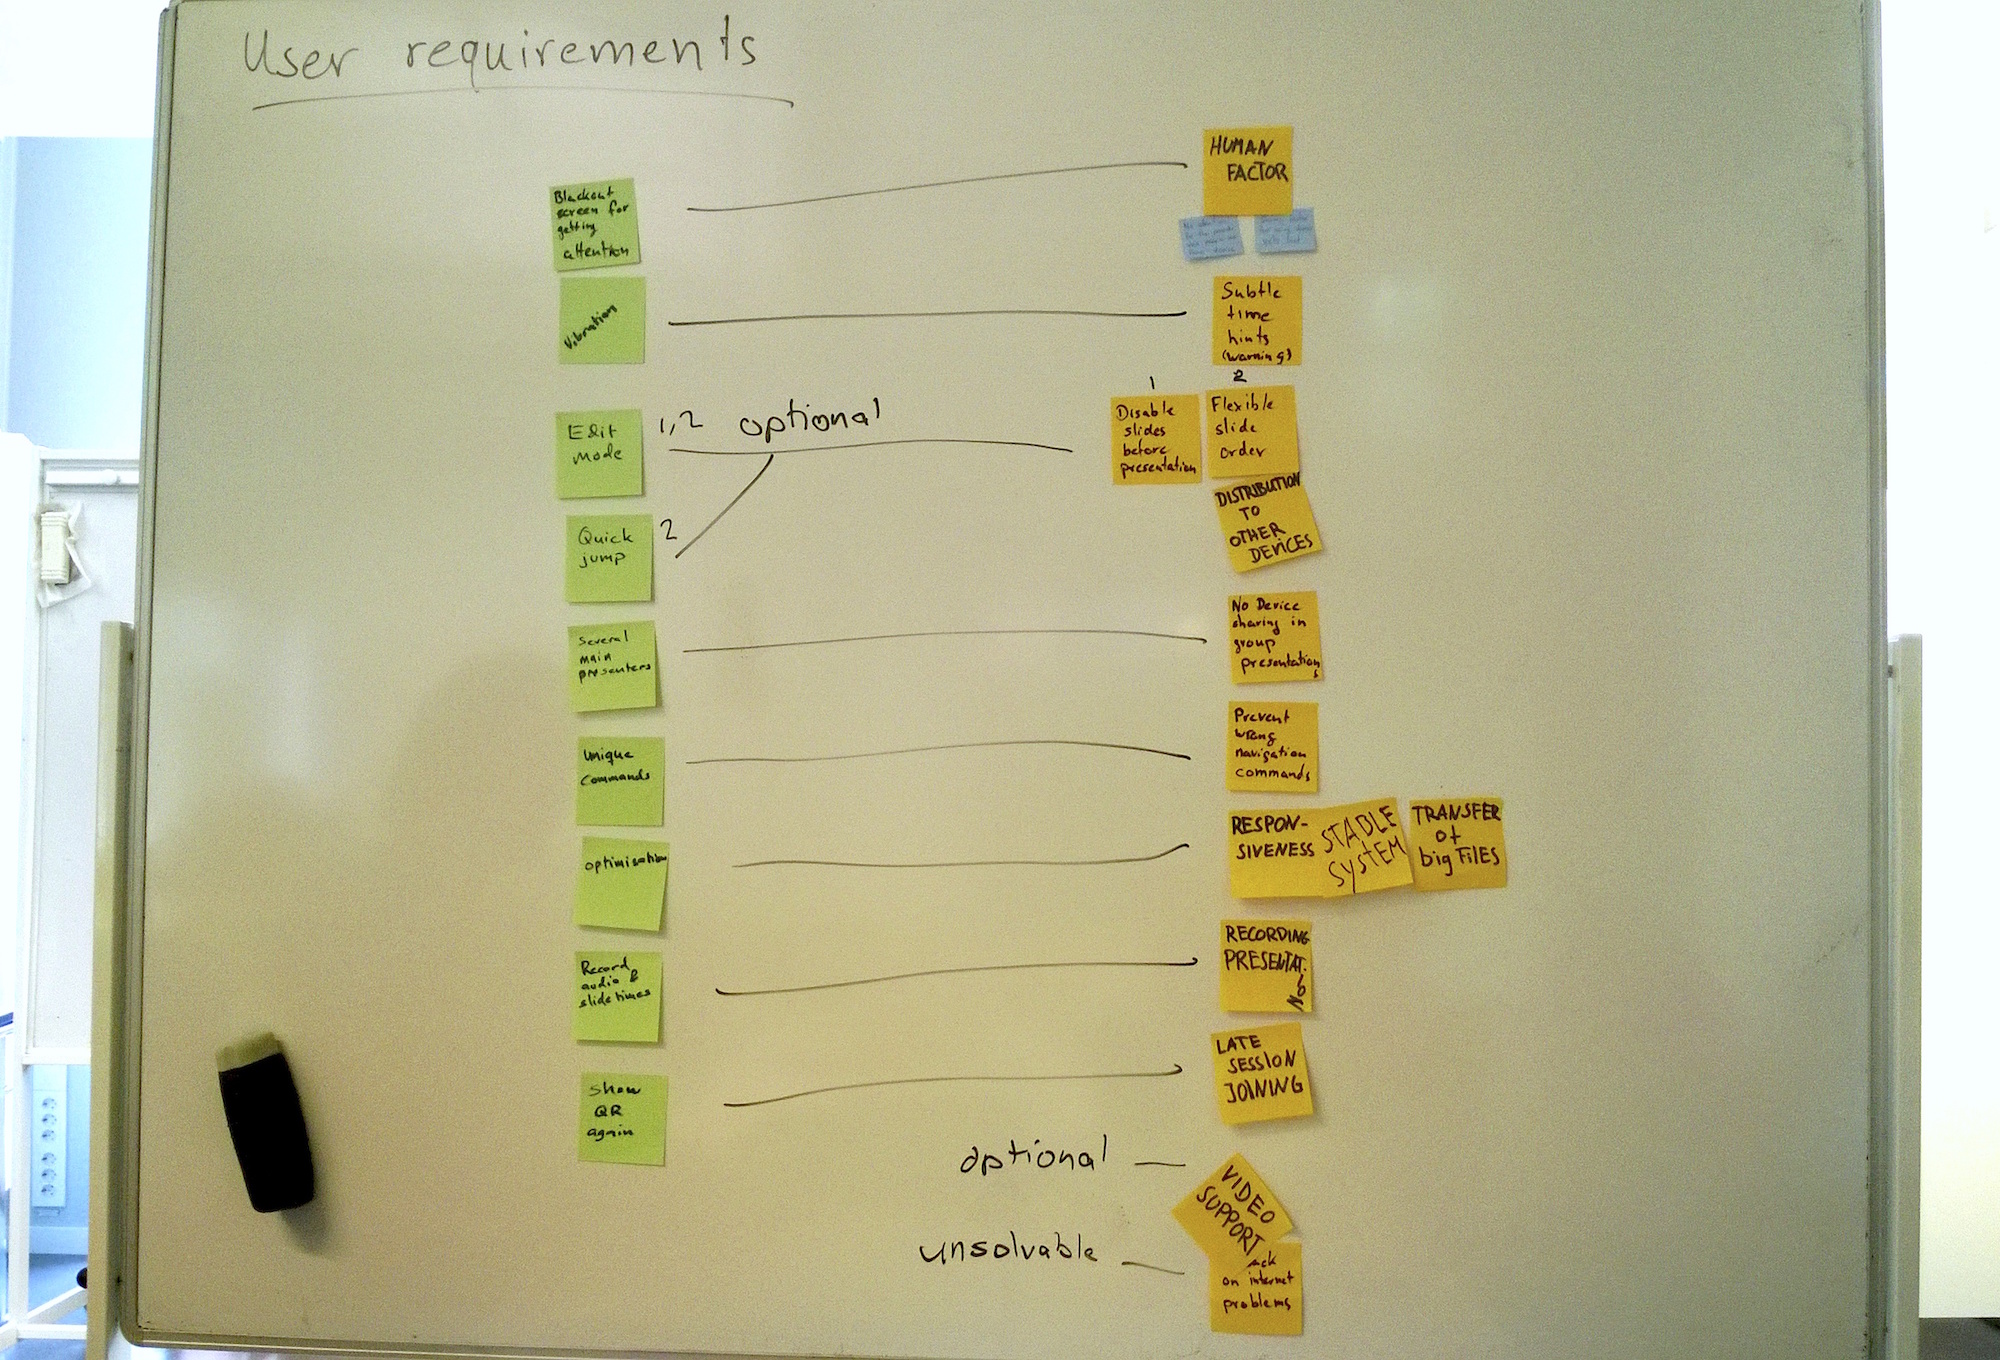 User requirements
Blackout
screen for
getting
attention
HUMAN
FACTOR
Vibration
Subtle
time
hints
(warning)
Edit
mode
1,2 optional
1
Disable
slides
before
presentation
2
Flexible
slide
order
DISTRIBUTION
TO
OTHER
DEVICES
Quick
jump
2
Several
main
presenters
No Device
sharing in
group
presentations
Unique
commands
Prevent
wrong
navigation
commands
optimisation
RESPON-
SIVENESS
STABLE
SYSTEM
TRANSFER
of
big FILES
Record
audio &
slide times
RECORDING
PRESENTAT.
ION
Show
QR
again
LATE
SESSION
JOINING
optional
VIDEO
SUPPORT
unsolvable
on internet
problems